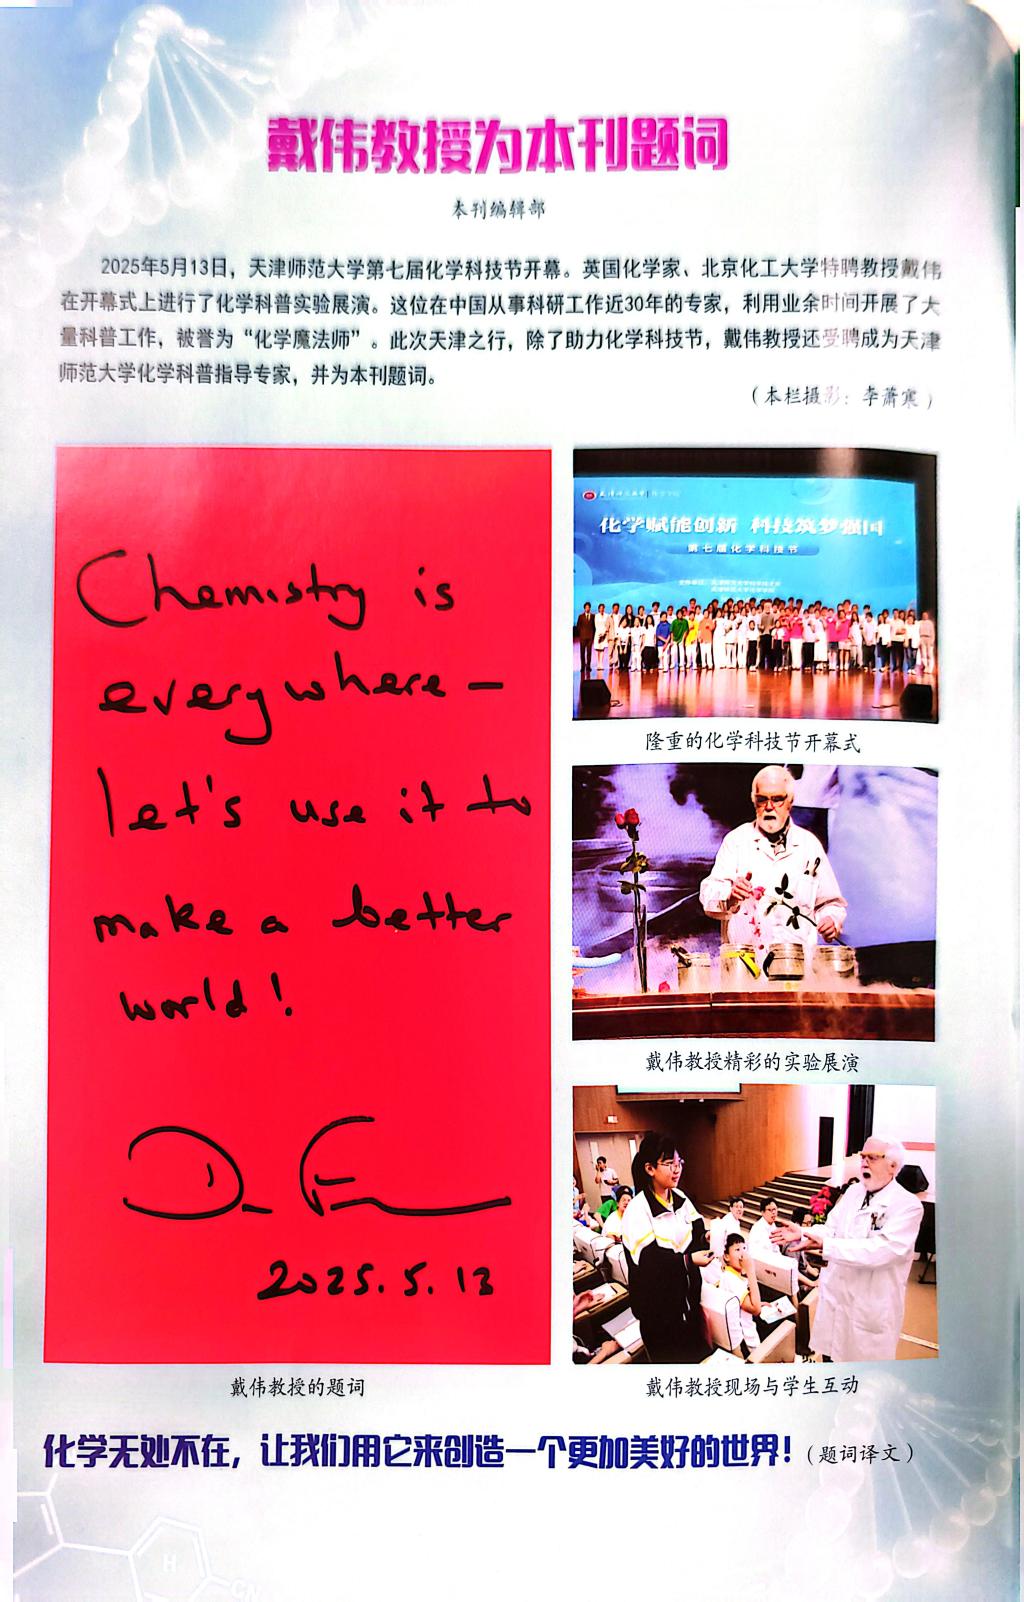 戴伟教授为本刊题词
本刊编辑部
2025年5月13日，天津师范大学第七届化学科技节开幕。英国化学家、北京化工大学特聘教授戴伟
在开幕式上进行了化学科普实验展演。这位在中国从事科研工作近30年的专家，利用业余时间开展了大
量科普工作，被誉为“化学魔法师”。此次天津之行，除了助力化学科技节，戴伟教授还受聘成为天津
师范大学化学科普指导专家，并为本刊题词。
（本栏摄影：李萧寒）
Chemistry is
everywhere –
let's use it to
make a better
world!
2025.5.13
戴伟教授的题词
化学赋能创新 科技筑梦强国
第七届化学科技节
隆重的化学科技节开幕式
戴伟教授精彩的实验展演
戴伟教授现场与学生互动
化学无处不在，让我们用它来创造一个更加美好的世界！（题词译文）
H
CN